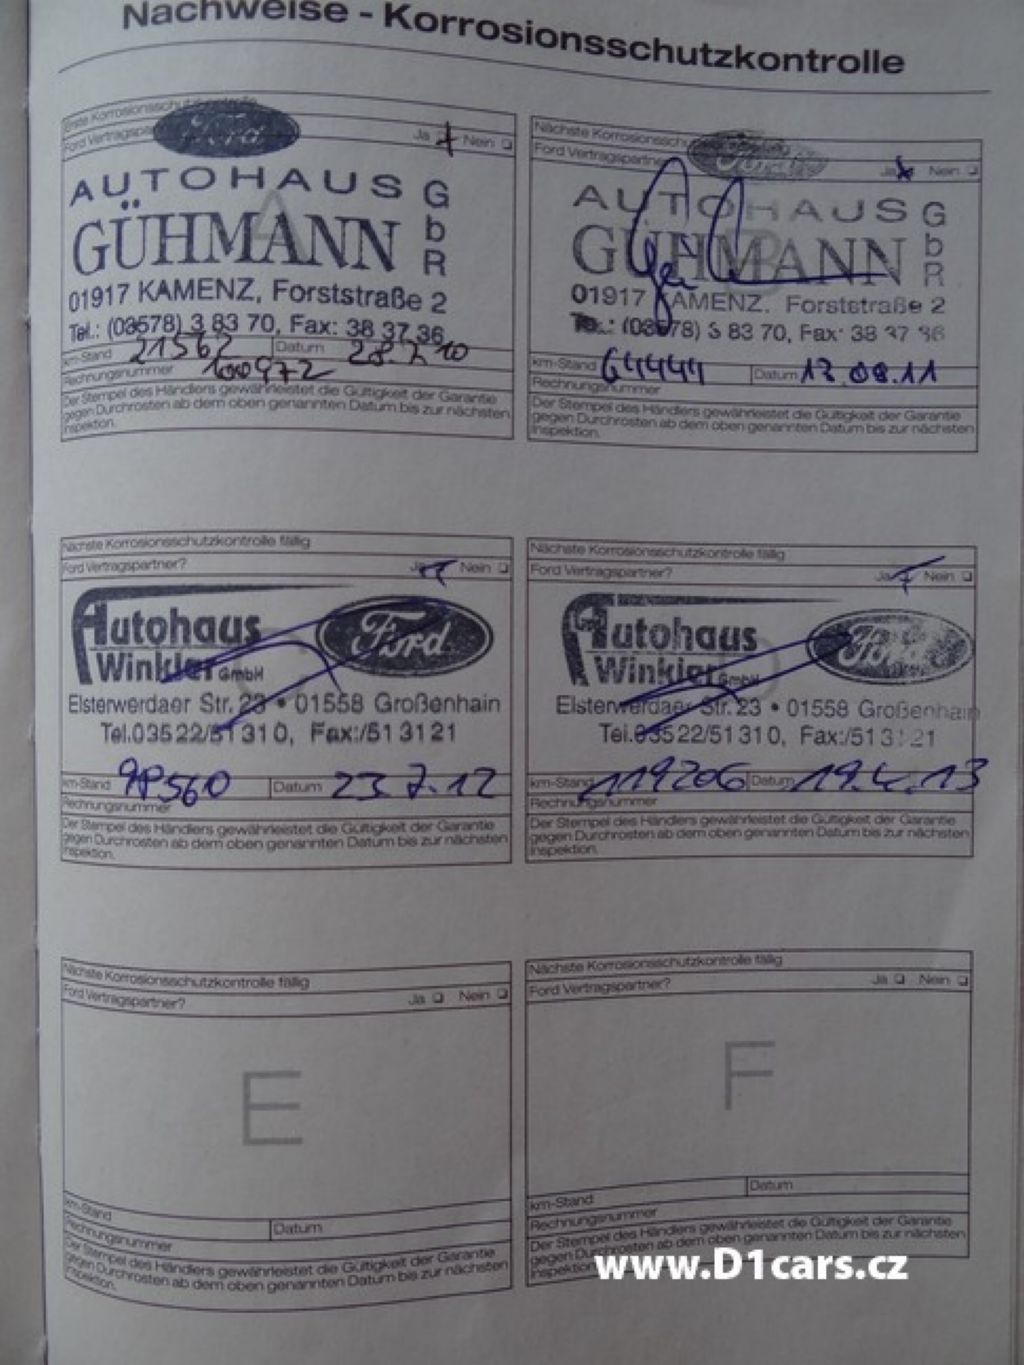 Nachweise - Korrosionsschutzkontrolle
Erste Korrosionsschutzkontrolle
Ford Vertragspa
Ja Nein
Ford
AUTOHAUS GbR
GÜHMANN
01917 KAMENZ, Forststraße 2
Tel.: (03578) 3 83 70, Fax: 38 37 36
km-Stand 21562 Datum 28.7.10
Rechnungsnummer 100972
Der Stempel des Händlers gewährleistet die Gültigkeit der Garantie
gegen Durchrosten ab dem oben genannten Datum bis zur nächsten
Inspektion.
Nächste Korrosionssch
Ford Vertragspartner
Ja Nein
Ford
AUTOHAUS GbR
GÜHMANN
01917 KAMENZ, Forststraße 2
Tel.: (03578) 3 83 70, Fax: 38 37 36
km-Stand 64444 Datum 17.08.11
Rechnungsnummer
Der Stempel des Händlers gewährleistet die Gültigkeit der Garantie
gegen Durchrosten ab dem oben genannten Datum bis zur nächsten
Inspektion.
Nächste Korrosionsschutzkontrolle fällig
Ford Vertragspartner? Ja Nein
Autohaus
Winkler GmbH
Ford
Elsterwerdaer Str. 23 • 01558 Großenhain
Tel.03522/51310, Fax:/513121
km-Stand 98560 Datum 23.7.12
Rechnungsnummer
Der Stempel des Händlers gewährleistet die Gültigkeit der Garantie
gegen Durchrosten ab dem oben genannten Datum bis zur nächsten
Inspektion.
Nächste Korrosionsschutzkontrolle fällig
Ford Vertragspartner? Ja Nein
Autohaus
Winkler GmbH
Ford
Elsterwerdaer Str. 23 • 01558 Großenhain
Tel.03522/51310, Fax:/513121
km-Stand 119206 Datum 19.4.13
Rechnungsnummer
Der Stempel des Händlers gewährleistet die Gültigkeit der Garantie
gegen Durchrosten ab dem oben genannten Datum bis zur nächsten
Inspektion.
Nächste Korrosionsschutzkontrolle fällig
Ford Vertragspartner? Ja Nein
E
km-Stand Datum
Rechnungsnummer
Der Stempel des Händlers gewährleistet die Gültigkeit der Garantie
gegen Durchrosten ab dem oben genannten Datum bis zur nächsten
Inspektion.
Nächste Korrosionsschutzkontrolle fällig
Ford Vertragspartner? Ja Nein
F
km-Stand Datum
Rechnungsnummer
Der Stempel des Händlers gewährleistet die Gültigkeit der Garantie
gegen Durchrosten ab dem oben genannten Datum bis zur nächsten
Inspektion
www.D1cars.cz